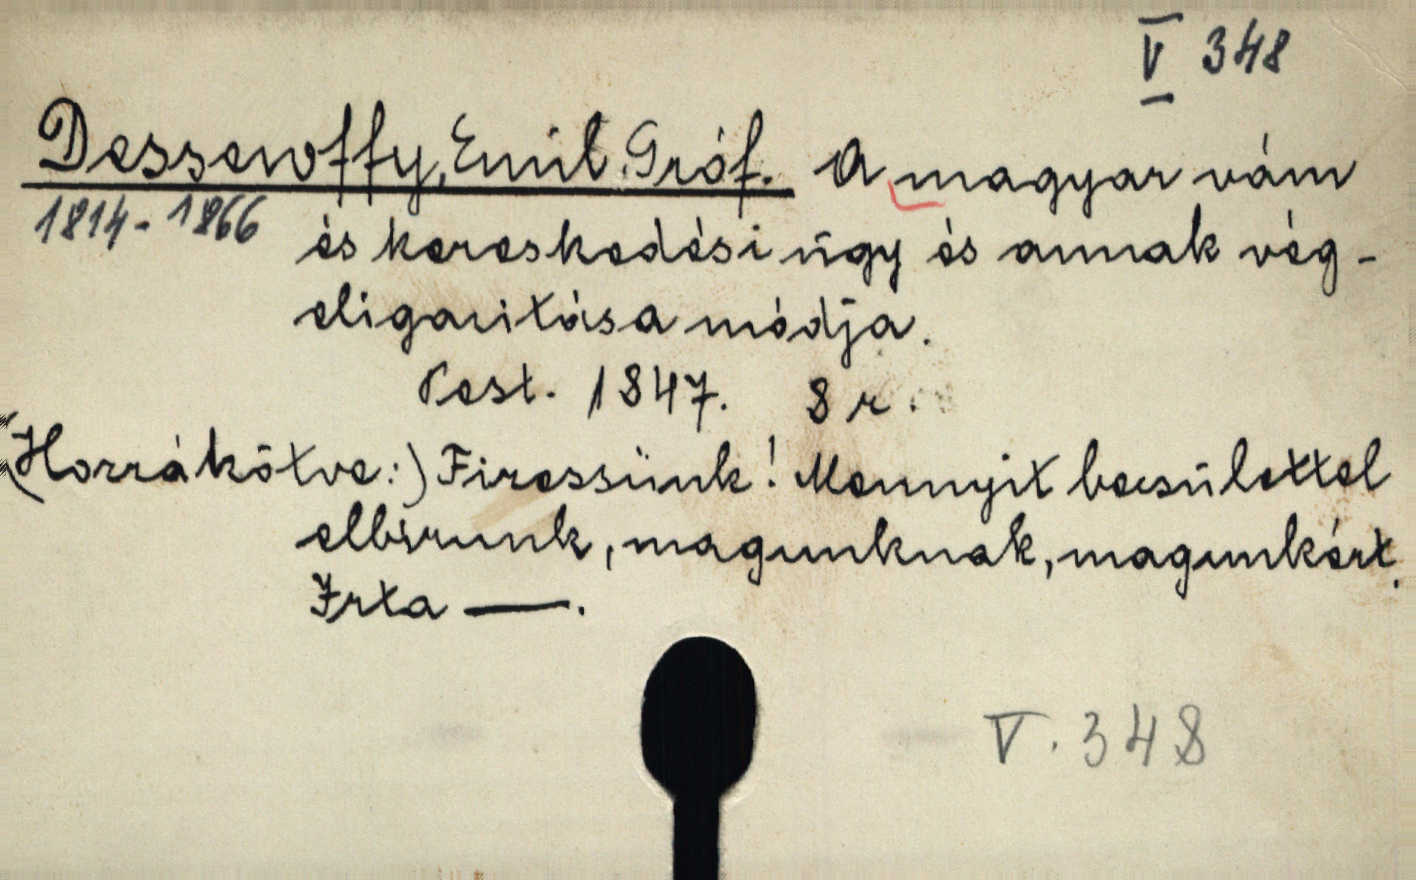 V 348
Dessewffy, Emil Gróf. A magyar vám
1814-1866
és kereskedési ügy és annak vég-
eligazitása módja.
Pest. 1847. 8 r.
(Hozzákötve:) Fizessünk! Mennyit becsülettel
elbirunk, magunknak, magunkért.
Irta —.
V. 348